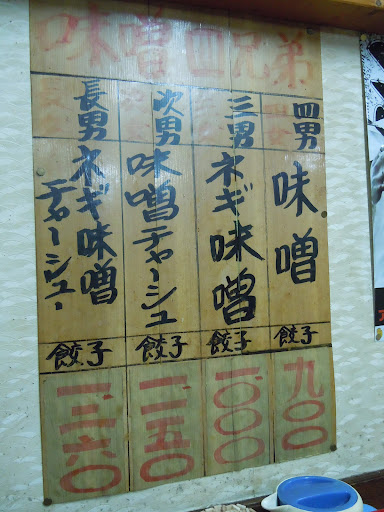 味噌四兄弟
長男
ネギ味噌
チャーシュー
餃子
一、三六〇
次男
味噌チャーシュー
餃子
一、二五〇
三男
ネギ味噌
餃子
一、〇〇〇
四男
味噌
餃子
九〇〇